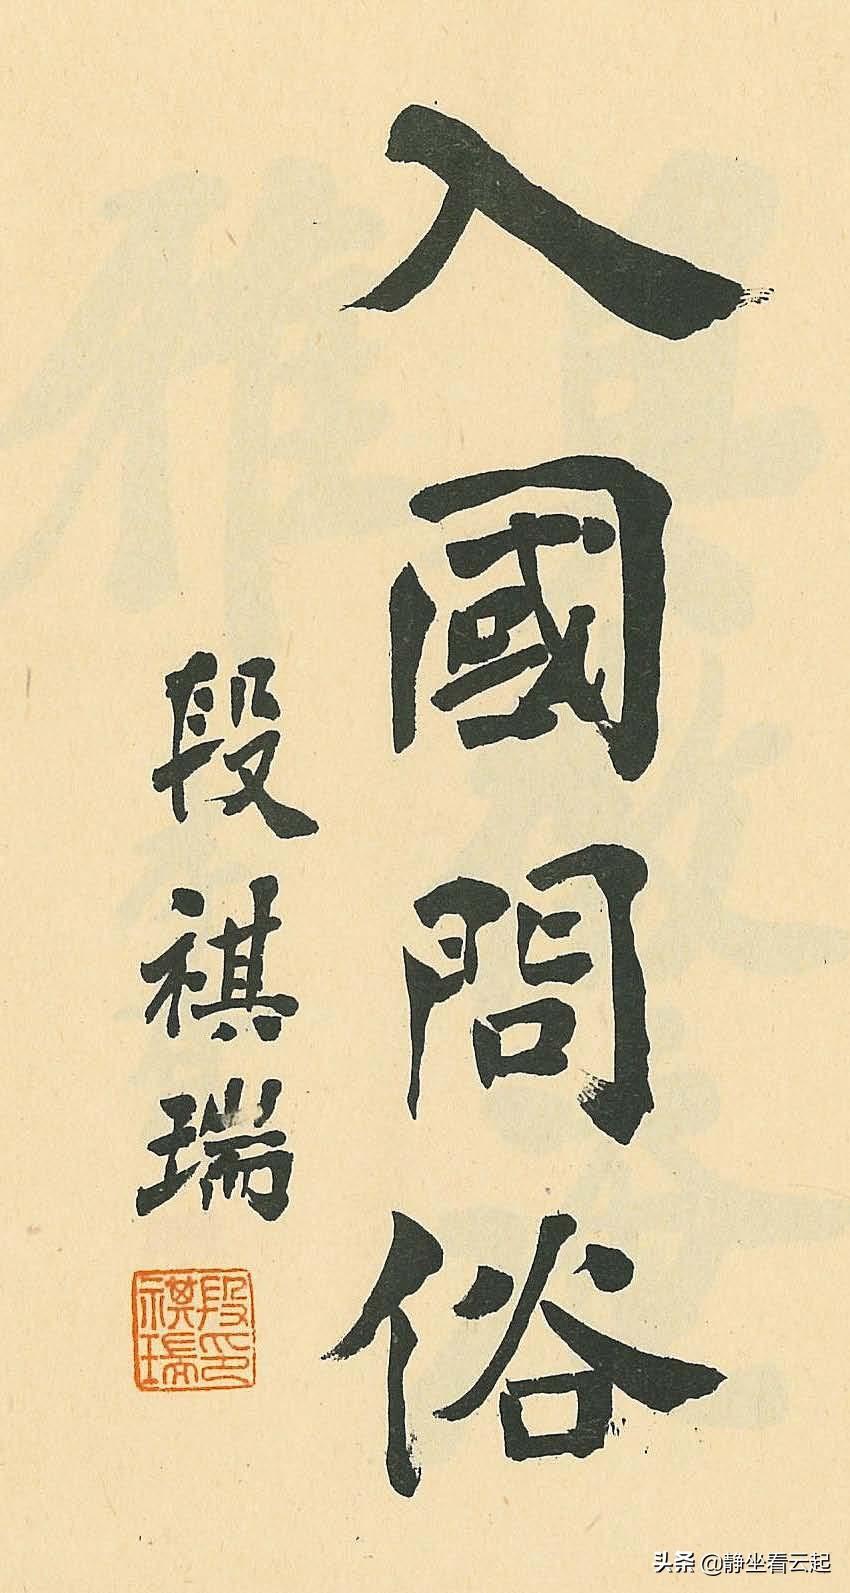 入國問俗
段祺瑞
段印
祺瑞
头条 @静坐看云起